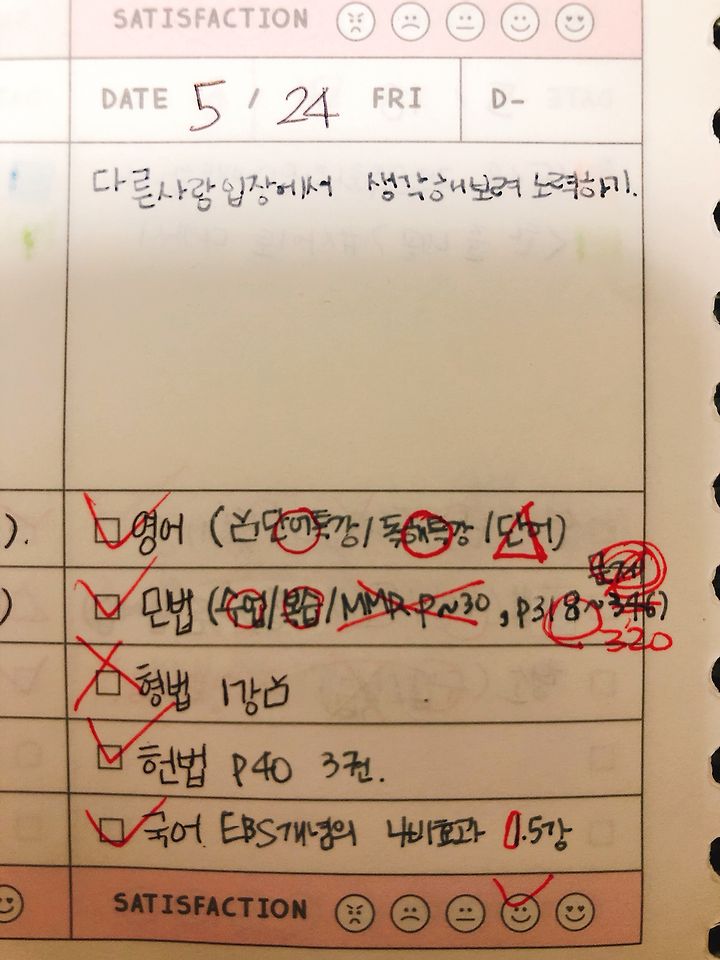 SATISFACTION
DATE 5 / 24 FRI D-
다른사람 입장에서 생각해보려 노력하기.
).
영어 (단어특강/독해특강/단어)
문제
)
민법 (수업/복습/MMR P~30, P318~346)
320
형법 1강
헌법 P40 3권.
국어 EBS개념의 나비효과 .5강
SATISFACTION